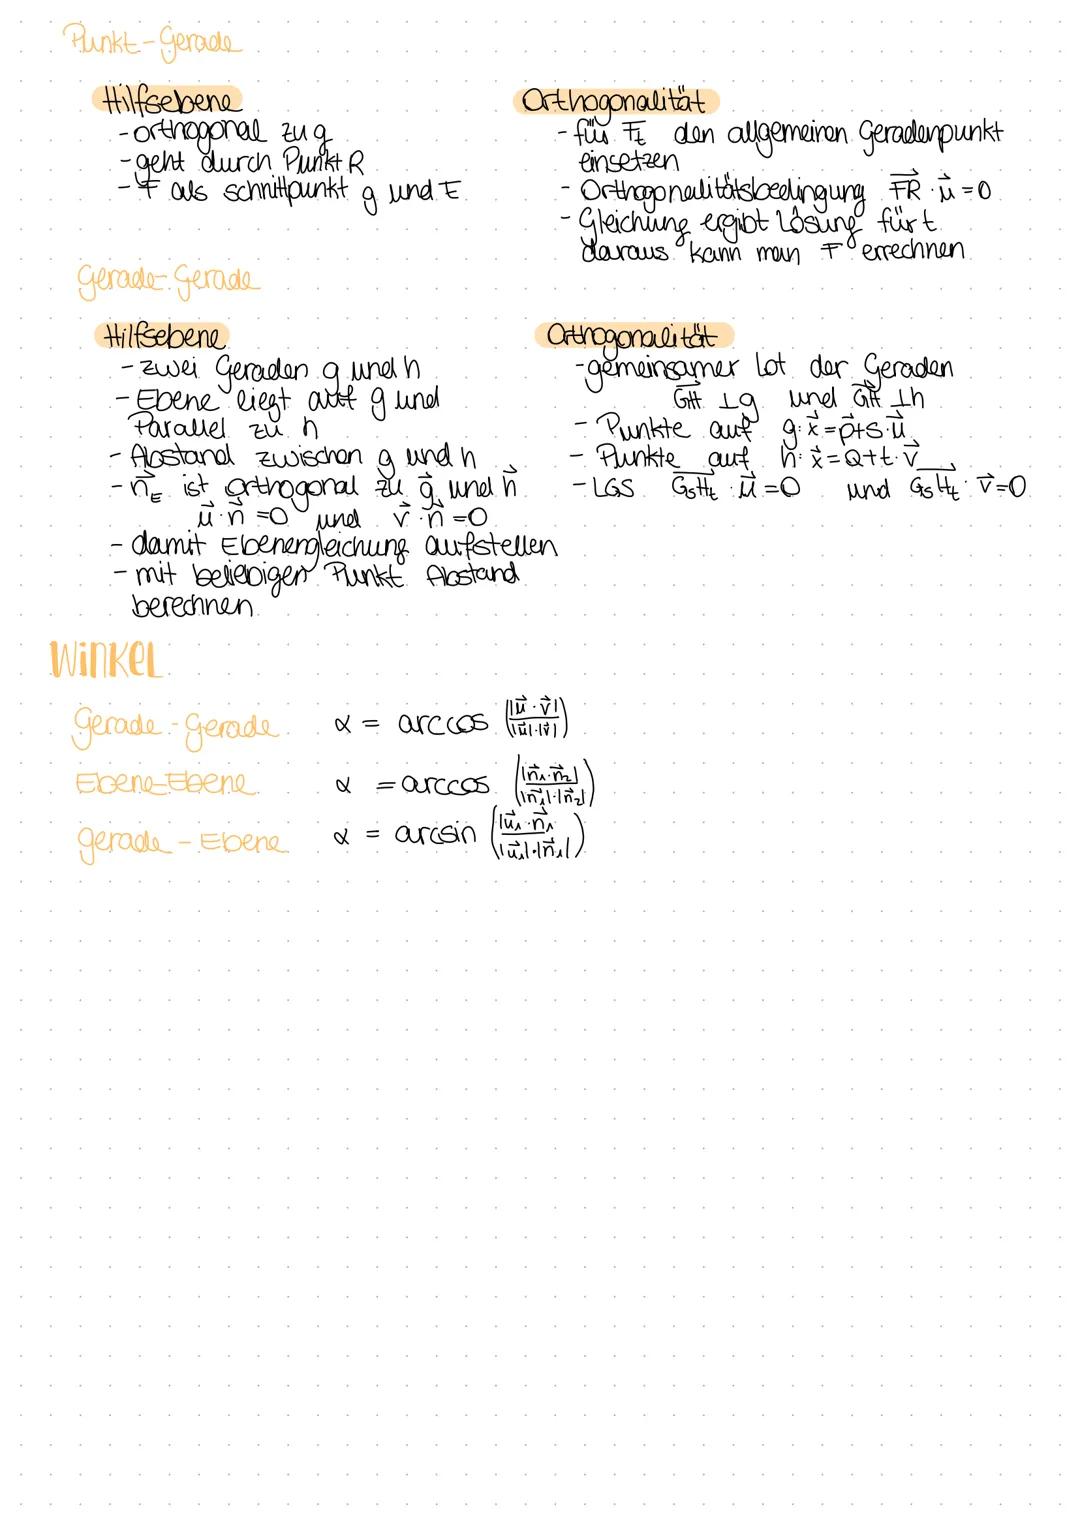 Punkt-Gerade
Hilfsebene
- orthogonal zu g
- geht durch Punkt R
- F als schnittpunkt g und E
Orthogonalität
- für F_t den allgemeinen Geradenpunkt
einsetzen
- Orthogonalitätsbedingung FR⃗ · u⃗ = 0
- Gleichung ergibt Lösung für t
daraus kann man F errechnen
Gerade-Gerade
Hilfsebene
- zwei Geraden g und h
- Ebene liegt auf g und
Parallel zu h
- Abstand zwischen g und h
- n⃗_E ist orthogonal zu g⃗ und h⃗
u⃗ · n⃗ = 0 und v⃗ · n⃗ = 0
- damit Ebenengleichung aufstellen
- mit beliebigen Punkt Abstand
berechnen
Orthogonalität
- gemeinsamer Lot der Geraden
GH⃗ ⊥ g und GH⃗ ⊥ h
- Punkte auf g: x⃗ = p⃗ + s · u⃗
- Punkte auf h: x⃗ = Q + t · v⃗
- LGS G_sH_t⃗ · u⃗ = 0 und G_sH_t⃗ · v⃗ = 0
WINKEL
Gerade-Gerade α = arccos (|u⃗ · v⃗| / |u⃗| · |v⃗|)
Ebene-Ebene α = arccos (|n⃗₁ · n⃗₂| / |n⃗₁| · |n⃗₂|)
gerade - Ebene α = arcsin (|u⃗₁ · n⃗₁ / |u⃗₁| · |n⃗₁|)